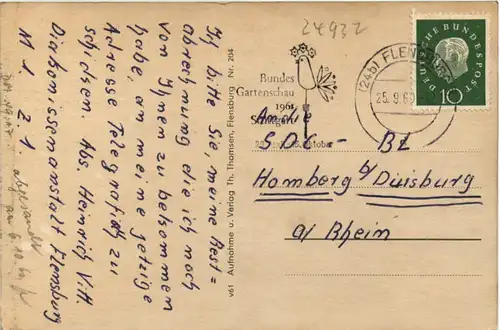 24932
DEUTSCHE BUNDESPOST
10
(24b) FLENSBURG
25.9.60
Bundes
Gartenschau
1961
Stuttgart
Oktober
An die
SDC – Bz
Homberg b/ Duisburg
a/ Rhein
Ich bitte Sie, meine Rest=
abrechnung die ich noch
von Ihnen zu bekommen
habe, an meine jetzige
Adresse Telegrafisch zu
schicken. Abs. Heinrich Vitt
Diakonissenanstalt Flensburg
M 1. Z 1.
abgesandt
am 6.10.60
v61 Aufnahme u. Verlag Th. Thomsen, Flensburg Nr. 204